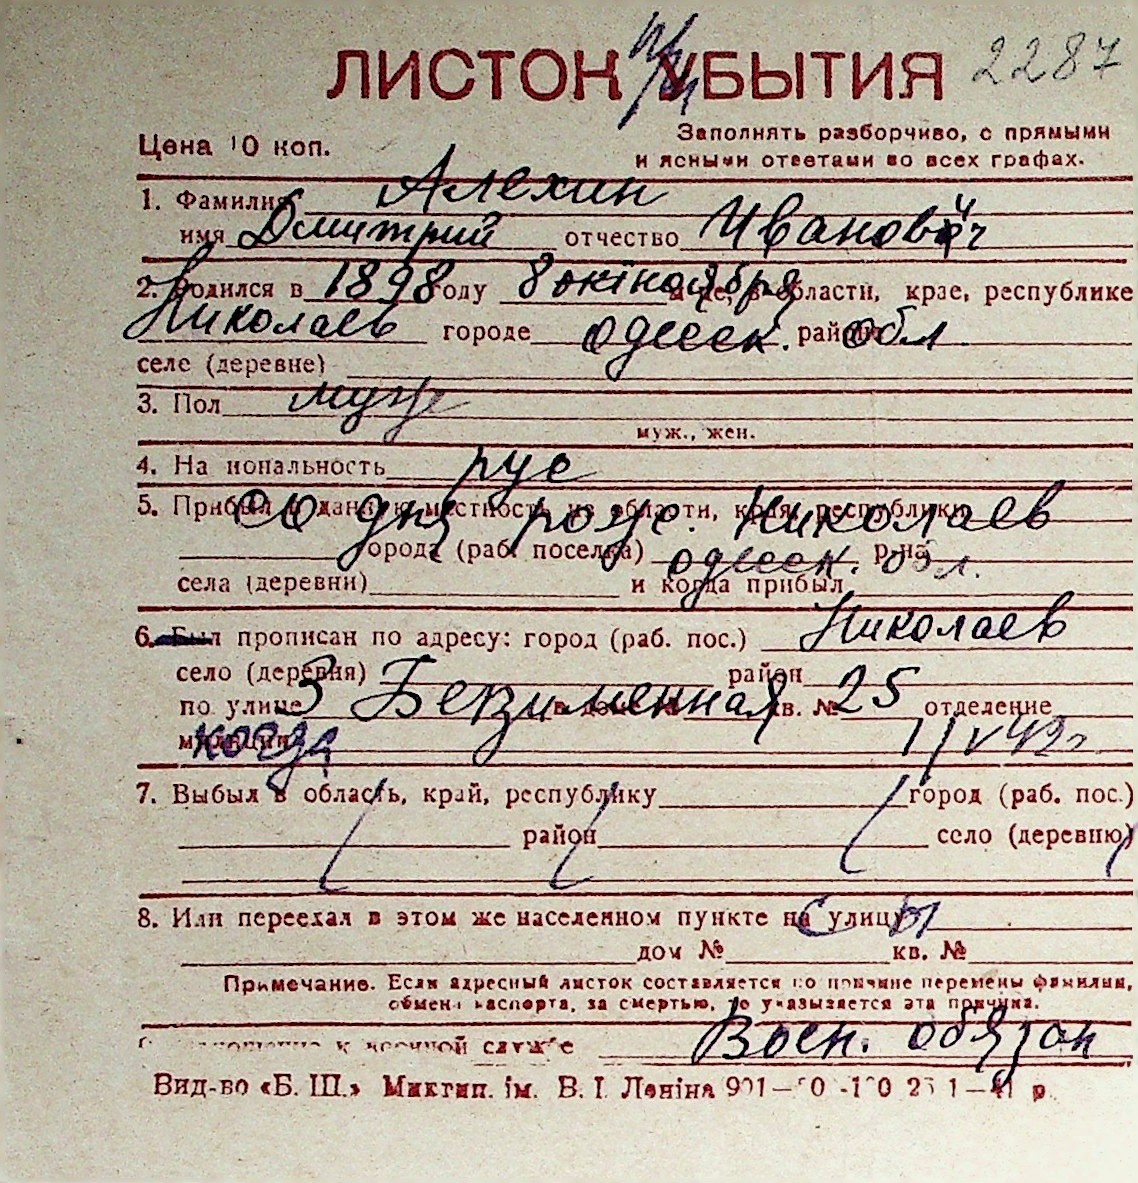 ЛИСТОК УБЫТИЯ 2287
Цена 10 коп.
Заполнять разборчиво, с прямыми
и ясными ответами во всех графах.
1. Фамилия Алехин
имя Дмитрий отчество Иванович
2. Родился в 1898 году 8 октября м-це, в области, крае, республике
Николаев городе одесск. районе обл
селе (деревне)
3. Пол муж
муж., жен.
4. Национальность рус
5. Прибыл в данную местность из области, края, республики со дня рожд. Николаев
города (раб. поселка) одесск. р-на обл.
села (деревни) и когда прибыл
6. Был прописан по адресу: город (раб. пос.) Николаев
село (деревня) район
по улице 3 Безименная в доме кв. № 25 отделение
милиции когда 1/V 42г
7. Выбыл в область, край, республику город (раб. пос.)
район село (деревню)
8. Или переехал в этом же населенном пункте на улицу
дом № кв. №
Примечание. Если адресный листок составляется по причине перемены фамилии,
обмена паспорта, за смертью, то указывается эта причина.
к военной службе Воен. обязан
Вид-во «Б. Ш.» Микгип. ім. В. І. Леніна